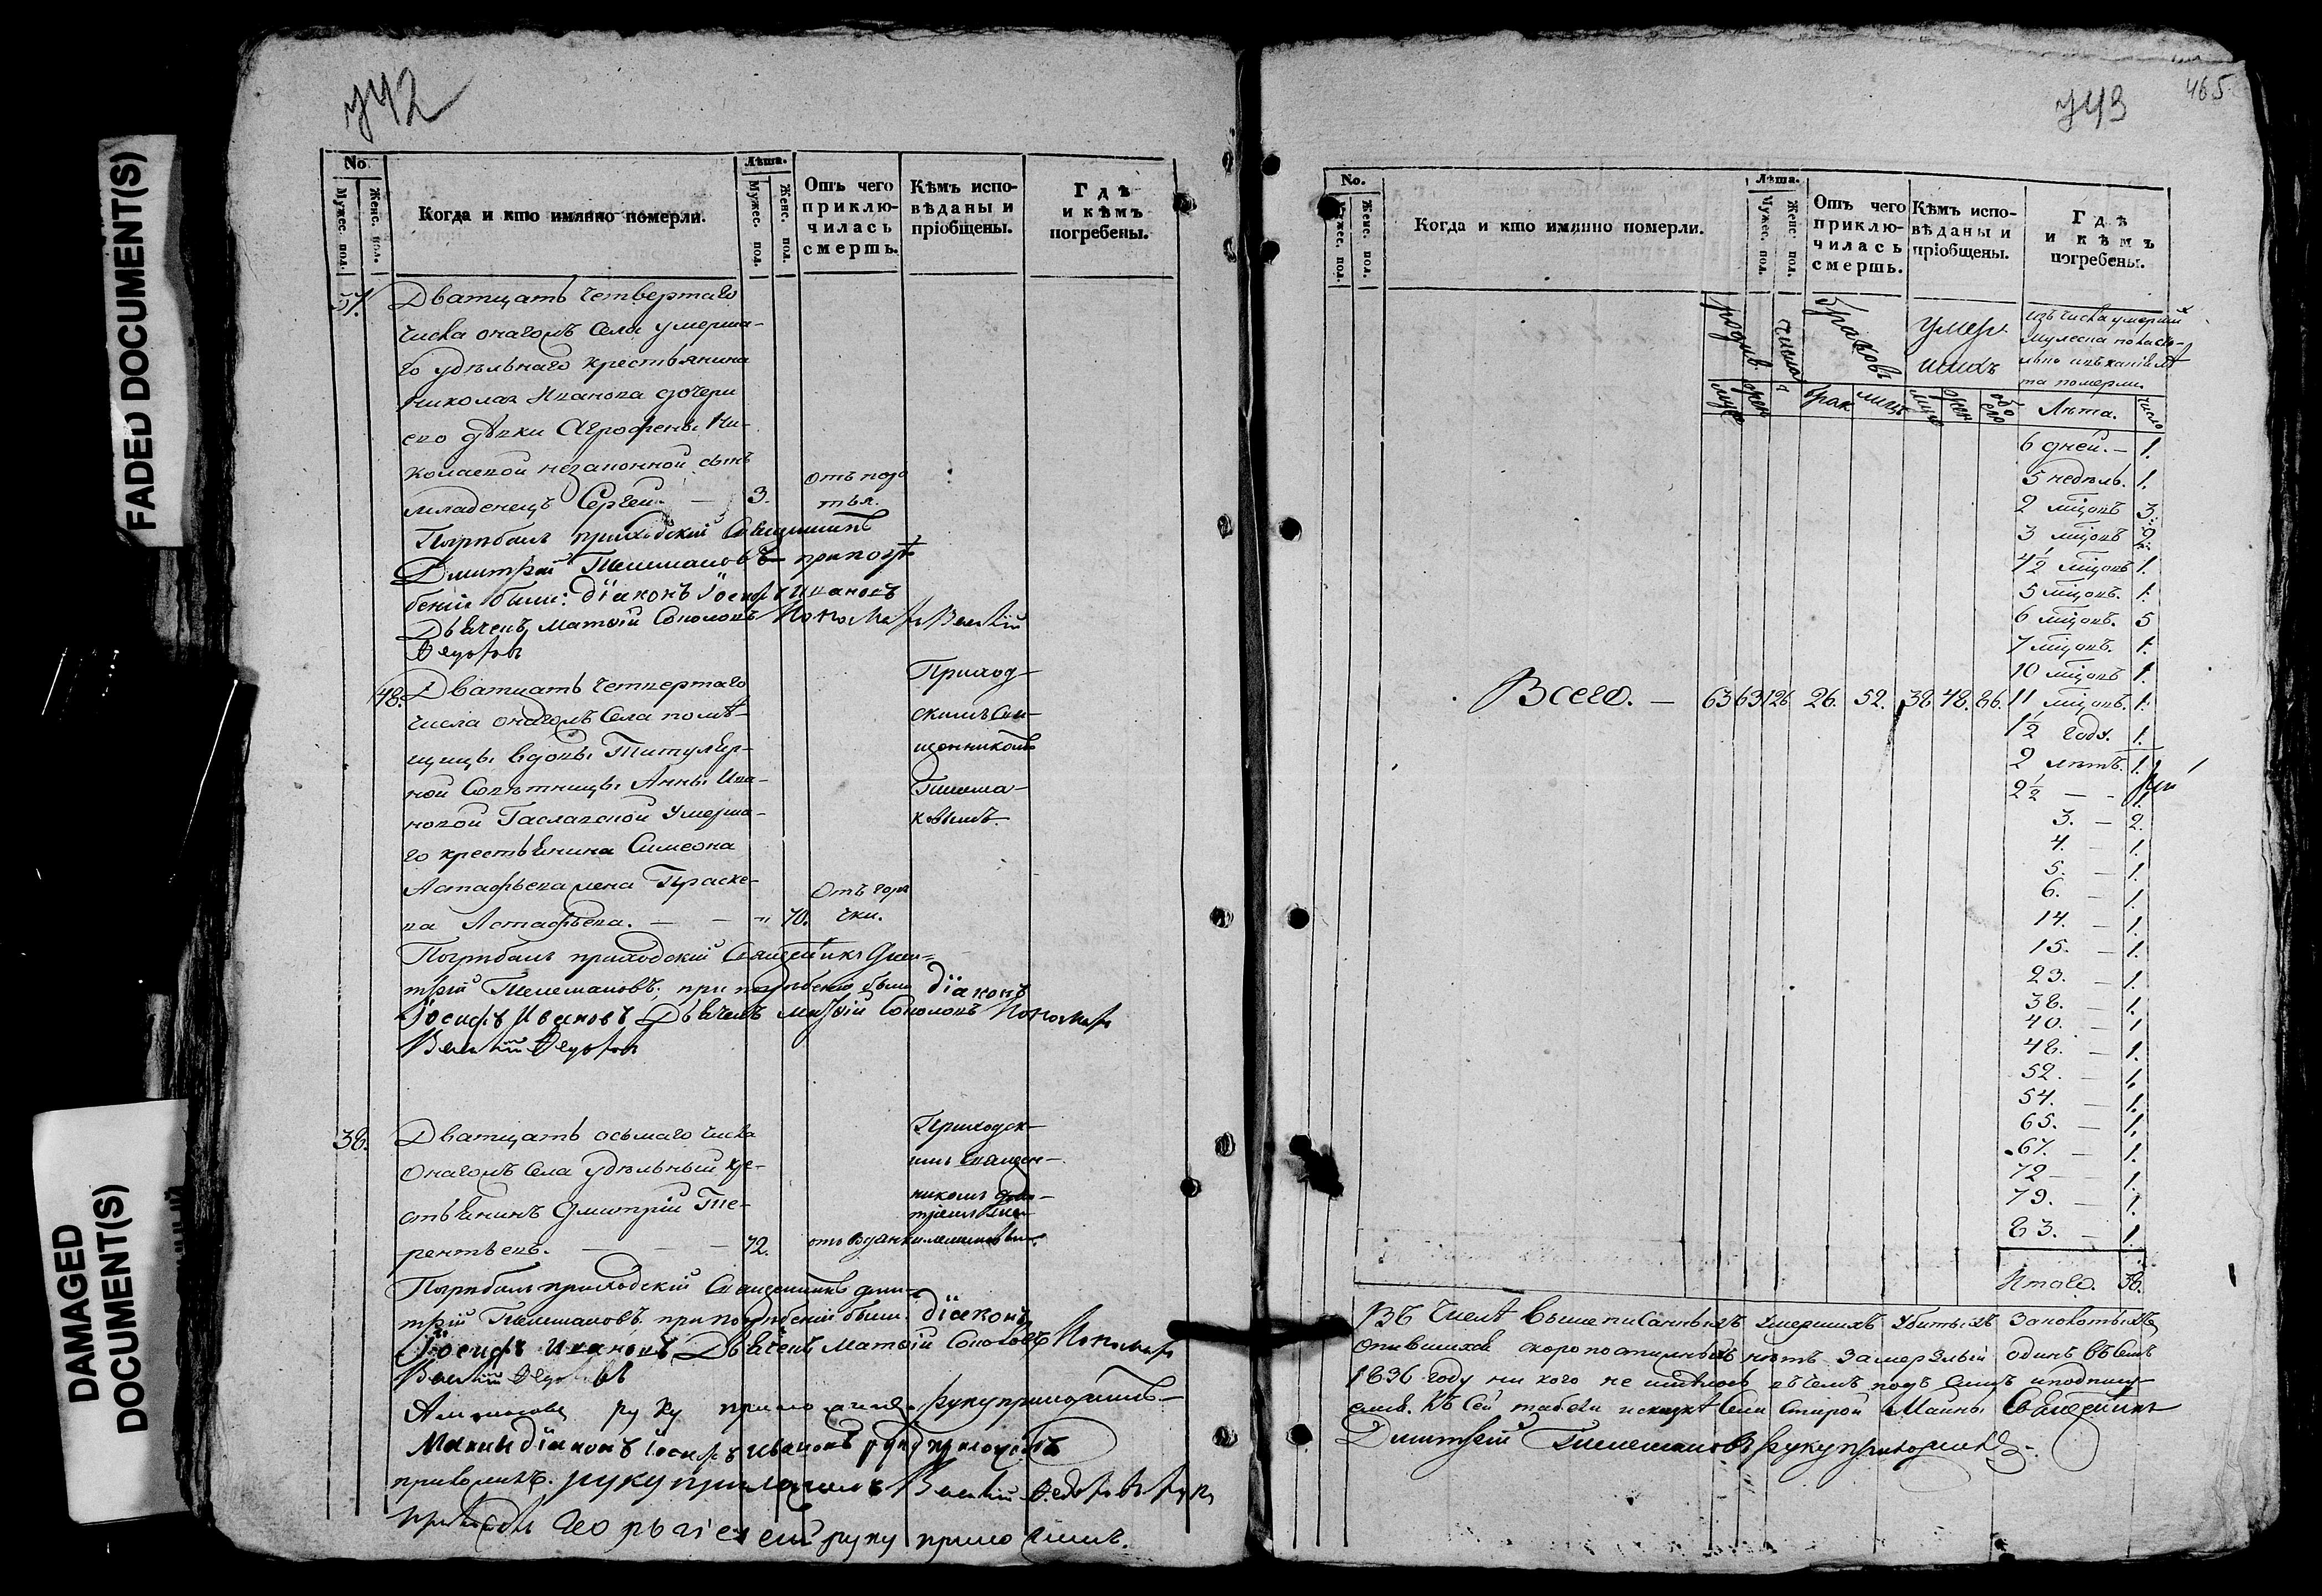 FADED DOCUMENT(S)
DAMAGED
DOCUMENT(S)
742
No
Мужес. пол.
Женс. пол.
Когда и кто имянно померли.
Лѣта.
Мужес. пол.
Женс. пол.
Отъ чего
приклю-
чилась
смерть.
Кѣмъ испо-
вѣданы и
пріобщены.
Гдѣ
и кѣмъ
погребены.
37.
Дватцать четвертаго
числа онагожъ Села умерша-
го удѣльнаго крестьянина
Николая Иванова дочери
его дѣвки Агрофены Ни-
колаевой незаконной сынъ
младенецъ Сергей. — 3.
отъ
Погребалъ приходскій Священникъ
Дмитрій при погре-
беніи были: діаконъ Іосифъ Ивановъ
Дьячекъ Матвій Соколовъ Пономарь Василій
Федотовъ
48.
Дватцать четвертаго
числа онагожъ Села помѣ-
щицы вдовы Титуляр-
ной Совѣтницы Анны Ива-
новой умерша-
го крестьянина Симеона
Астафьева жена Праске-
ва Астафьева. — — „ 70.
отъ горя
чки.
Приход-
скимъ Свя-
щенникомъ
Погребалъ приходскій Священникъ Дми-
трій при погребеніи были діаконъ
Іосифъ Ивановъ Дьячекъ Матвій Соколовъ Пономарь
Василій Федотовъ
38.
Дватцать осьмаго числа
онагожъ Села удѣльный кре-
стьянинъ Дмитрій Те-
рентьевъ. — — — 72.
Приходск-
имъ Священ-
никомъ Дми-
тріемъ
Погребалъ приходскій Священникъ Дми-
трій при погребеніи были діаконъ
Іосифъ Ивановъ Дьячекъ Матвій Соколовъ Пономарь
Василій
руку приложилъ
діаконъ Іосифъ Ивановъ руку приложилъ
руку приложилъ Василій Федотовъ
руку приложилъ.
743
465
No.
Мужес. пол.
Женс. пол.
Когда и кто имянно померли.
Лѣта.
Мужес. пол.
Женс. пол.
Отъ чего
приклю-
чилась
смерть.
Кѣмъ испо-
вѣданы и
пріобщены.
Гдѣ
и кѣмъ
погребены.
браковъ
умер-
шихъ
изъ числа умершихъ
Мужеска
та померли
брак
лицъ
Лѣта.
число
6 дней. — 1.
5 недѣль. 1.
2 мѣсяцовъ 3.
3 мѣсяцовъ 2.
4½ мѣсяцовъ 1.
5 мѣсяцовъ. 1.
6 мѣсяцовъ. 5
7 мѣсяцовъ. 1.
10 мѣсяцовъ 1.
Всего. — 63 63 126 26. 52. 38. 48. 86.
11 мѣсяцовъ. 1.
1½ году. 1.
2 лѣтъ. 1.
2½ — —
3. — 2.
4. — 1.
5. — 1.
6. — 1.
14. — 1.
15. — 1.
23. — 1.
38. — 1.
40. — 1
48. — 1.
52. — 1.
54. — 1.
65. — 1.
67. — 1.
72 — 1.
79. — 1.
83. — 1.
Итаго. 38.
Въ числѣ вышеписанныхъ умершихъ убитыхъ
опившихся скоропостижныхъ нѣтъ замерзлый одинъ въ семъ
1836 году ни кого не имѣлось въ чемъ подъ симъ и подпису-
емся. Къ сей Села Старой Майны Священникъ
Дмитрей руку приложилъ.